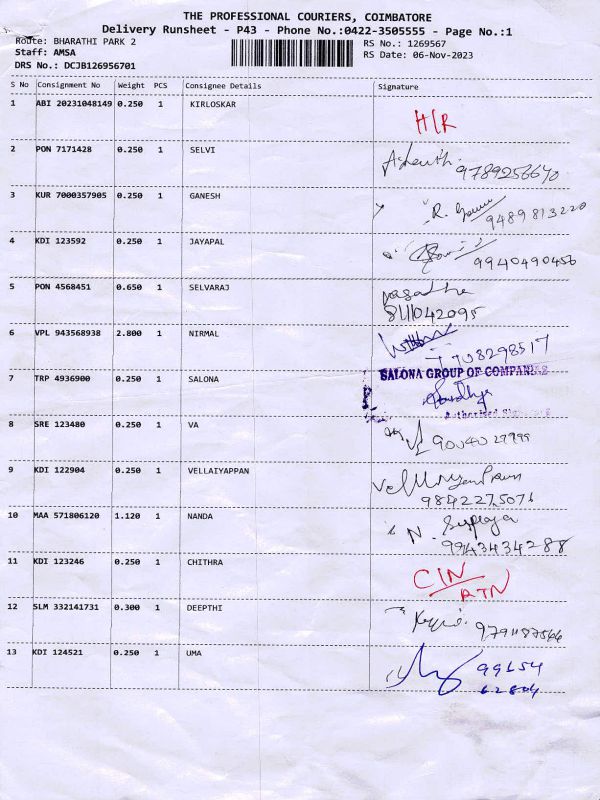 THE PROFESSIONAL COURIERS, COIMBATORE
Delivery Runsheet - P43 - Phone No.:0422-3505555 - Page No.:1
Route: BHARATHI PARK 2
RS No.: 1269567
Staff: AMSA
RS Date: 06-Nov-2023
DRS No.: DCJB126956701
S No Consignment No Weight PCS Consignee Details Signature
1 ABI 20231048149 0.250 1 KIRLOSKAR
H/R
2 PON 7171428 0.250 1 SELVI
9789256640
3 KUR 7000357905 0.250 1 GANESH
R.
9489813220
4 KDI 123592 0.250 1 JAYAPAL
9940490456
5 PON 4568451 0.650 1 SELVARAJ
8111042095
6 VPL 943568938 2.800 1 NIRMAL
7 TRP 4936900 0.250 1 SALONA
SALONA GROUP OF COMPANIES
Authorised
8 SRE 123480 0.250 1 VA
9 KDI 122904 0.250 1 VELLAIYAPPAN
9842275071
10 MAA 571806120 1.120 1 NANDA
N.
9943434288
11 KDI 123246 0.250 1 CHITHRA
CIN
RTN
12 SLM 332141731 0.300 1 DEEPTHI
13 KDI 124521 0.250 1 UMA
99654
62804